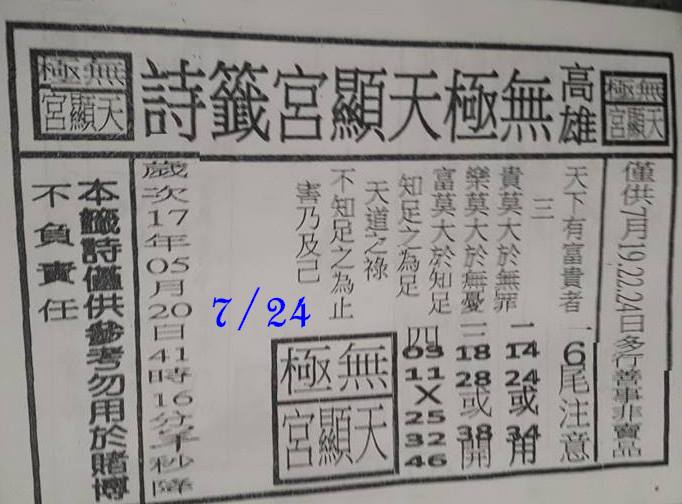 無極天顯宮
高雄無極天顯宮籤詩
無極天顯宮
僅供7月19.22.24日多行善事非賣品
天下有富貴者
三
貴莫大於無罪
樂莫大於無憂
富莫大於知足
知足之為足
天道之祿
不知足之為止
害乃及己
一6尾注意
二14 24或34用
三18 28或38開
四03 11X25 32 46
7/24
無極天顯宮
歲次17年05月20日41時16分子秒降
本籤詩僅供參考勿用於賭博
不負責任